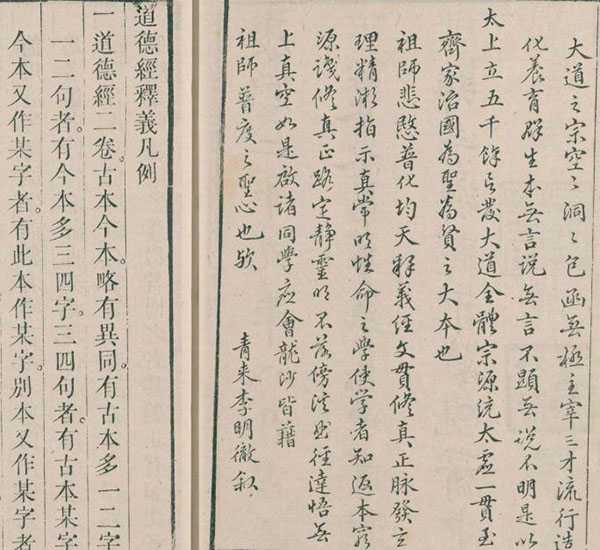 大道之宗空〻洞〻包函無極主宰三才流行造
化養育群生本無言說無言不顯無說不明是以
太上立五千餘言發大道全體宗源統太虛一貫至
齊家治國為聖為賢之大本也
祖師悲愍普化均天釋義經文貫修真正脉發立
理精微指示真常明性命之學使學者知返本窮
源識修真正路定靜靈明不落傍溪曲徑達悟無
上真空如是啟諸同學応會龍沙皆藉
祖師普度之聖心也歟
青来李明徹叙
道德經釋義凡例
一道德經二卷。古本今本。略有異同。有古本多一二字
一二句者。有今本多三四字。三四句者。有古本某字
今本又作某字者。有此本作某字。別本又作某字者